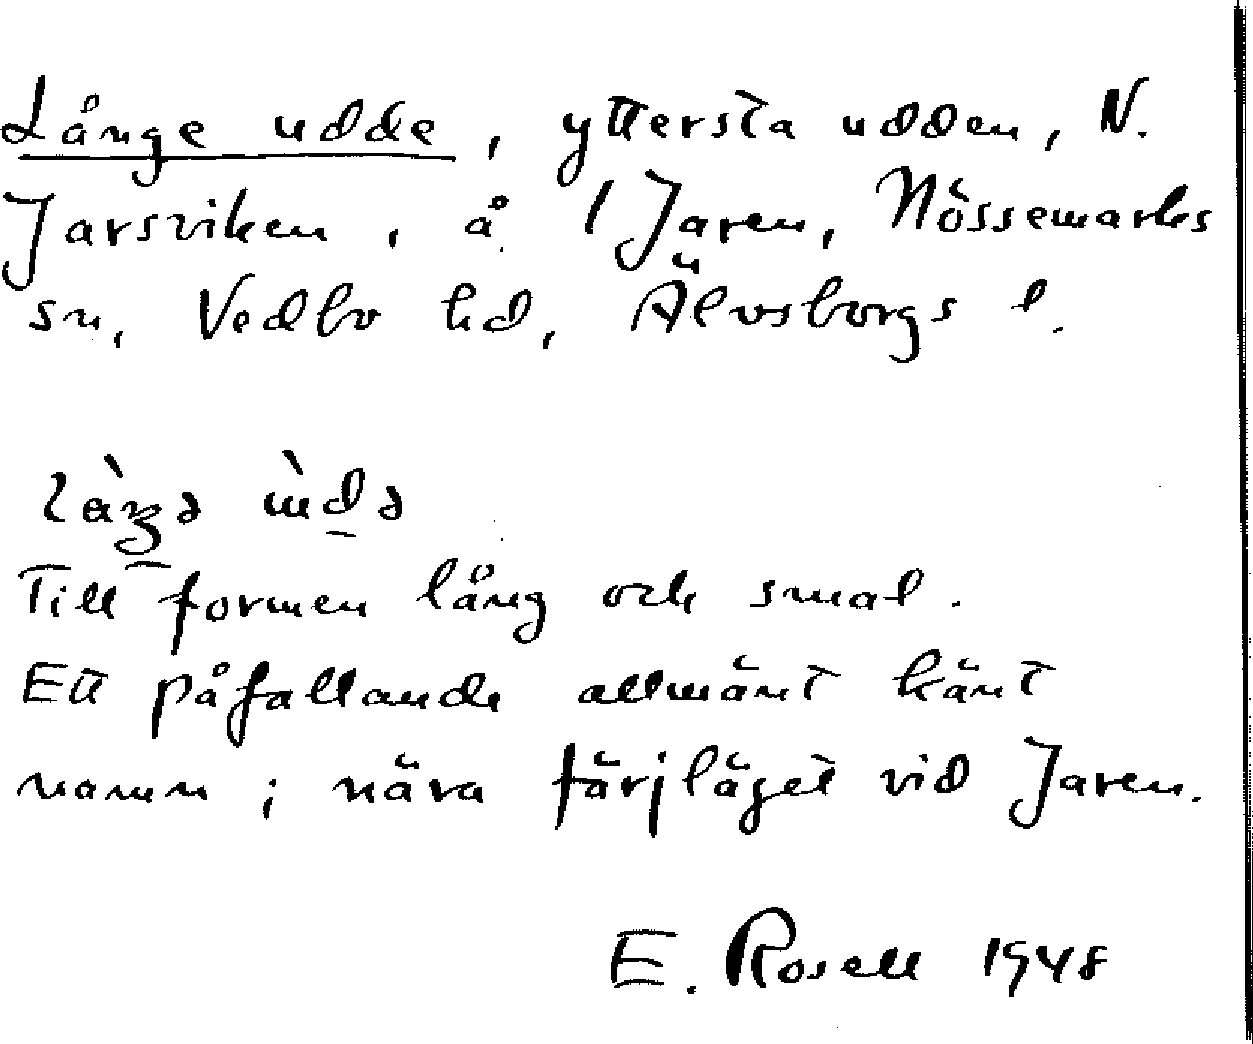 Långe udde, yttersta udden, N.
Jarsviken, å 1 Jaren, Nössemarks
sn, Vedbo hd, Älvsborgs l.
Till formen lång och smal.
Ett påfallande allmänt känt
namn; nära färjläget vid Jaren.
E. Rosell 1948